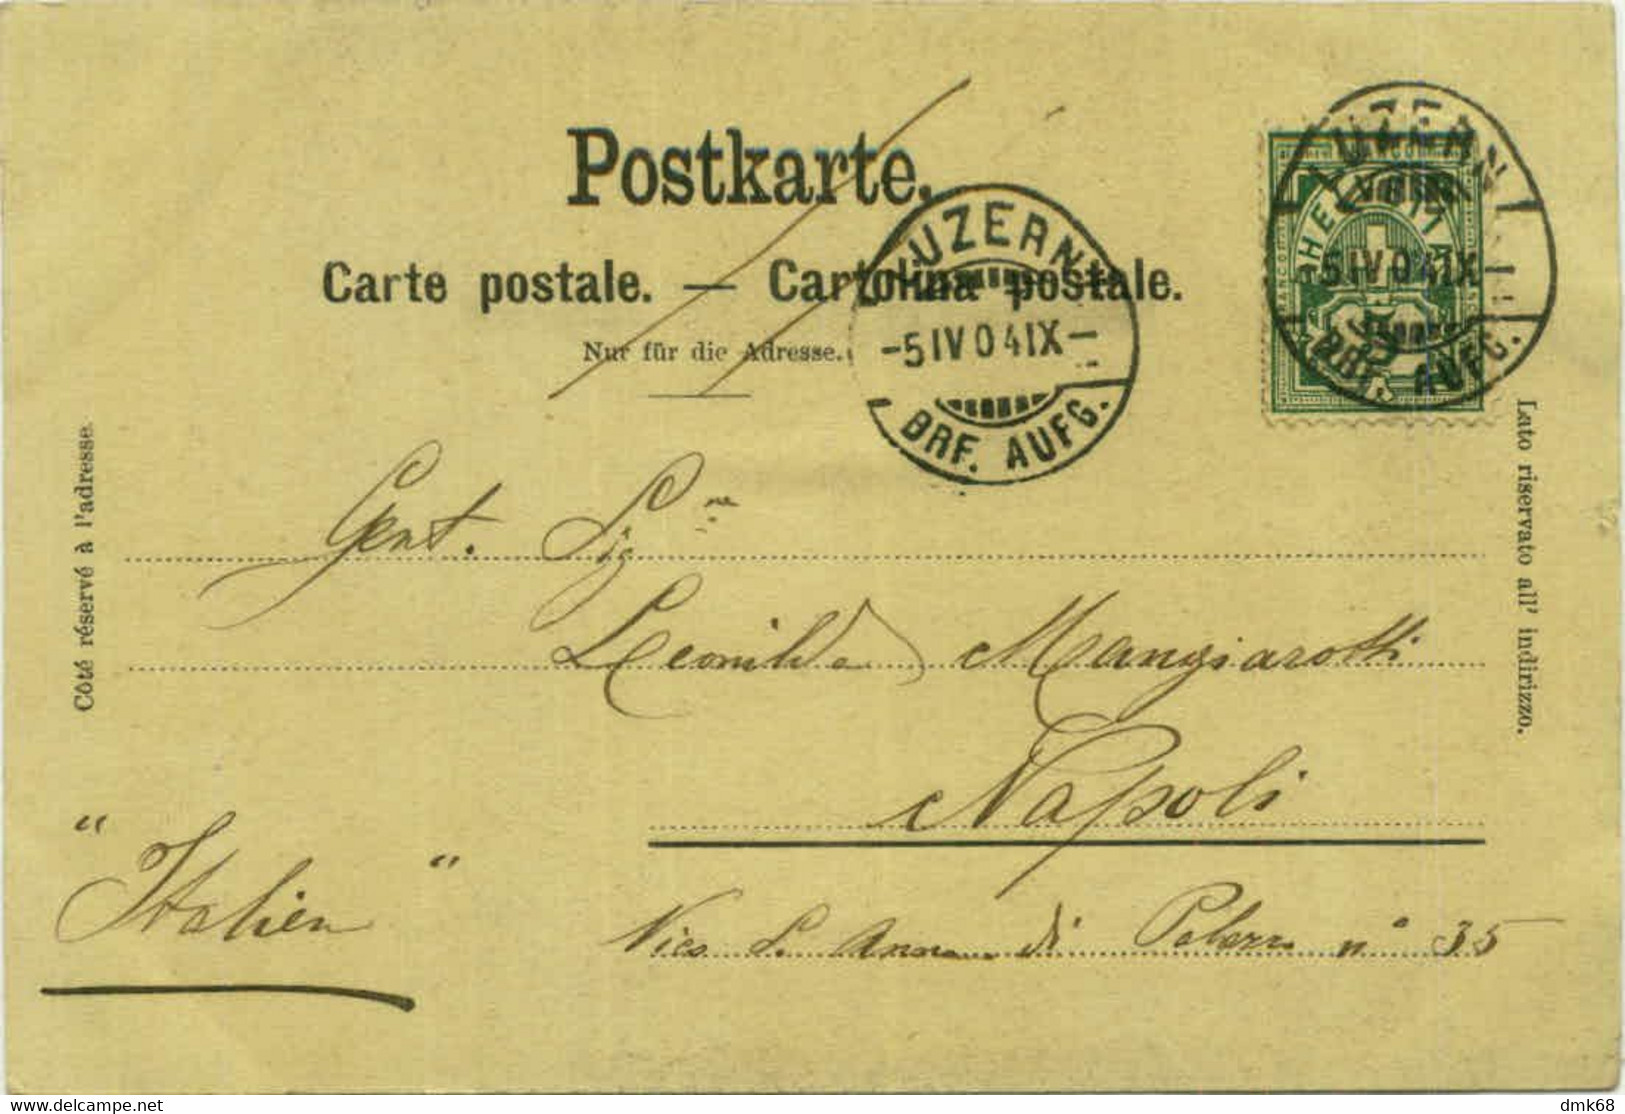 Postkarte.
Carte postale. — Cartolina postale.
Nur für die Adresse.
LUZERN
-5 IV 04 IX-
BRF. AUFG.
LUZERN
-5 IV 04 IX
BRF. AUFG.
HELVETIA
5
Côté réservé à l'adresse.
Lato riservato all' indirizzo.
Gent. Sig.ne
Leonilda Mangiarotti
Napoli
"Italien"
Vico S. Anna di Palazzo n° 35
dmk68